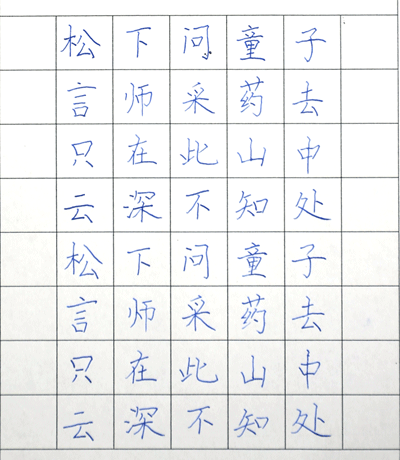 松下问童子
言师采药去
只在此山中
云深不知处
松下问童子
言师采药去
只在此山中
云深不知处